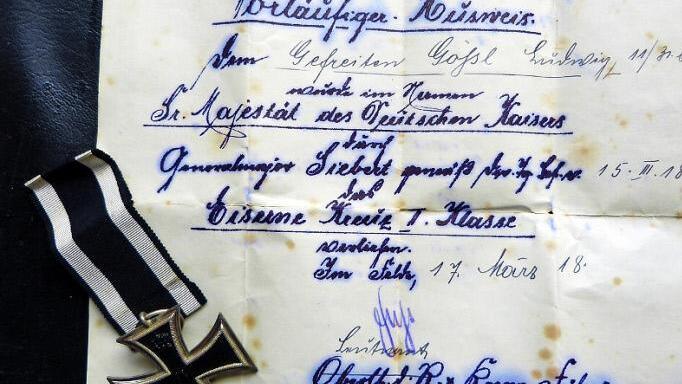 Vorläufiger Ausweis.
Dem Gefreiten Gößl Ludwig, 11/
wurde im Namen
Sr. Majestät des Deutschen Kaisers
durch
Generalmajor Siebert gemäß v. 15. III. 18
das
Eiserne Kreuz I. Klasse
verliehen.
Im Felde, 17. März 18.
Leutnant